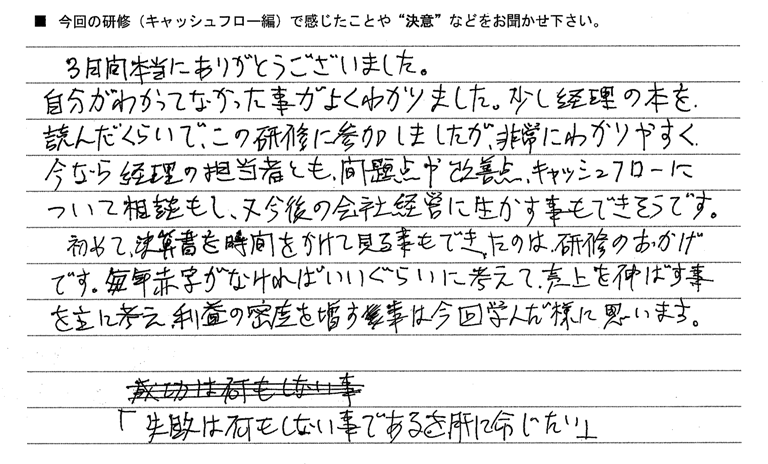 ■ 今回の研修（キャッシュフロー編）で感じたことや“決意”などをお聞かせ下さい。
3日間本当にありがとうございました。
自分がわかってなかった事がよくわかりました。少し経理の本を
読んだくらいで、この研修に参加しましたが、非常にわかりやすく
今なら経理の担当者とも、問題点や改善点、キャッシュフローに
ついて相談もし、又今後の会社経営に生かす事もできそうです。
初めて、決算書を時間をかけて見る事もできたのは、研修のおかげ
です。毎年赤字がなければいいぐらいに考えて、売上を伸ばす事
を主に考え、利益の密度を増す事は今回学んだ様に思います。
成功は何もしない事
「失敗は何もしない事である を肝に命じたい」